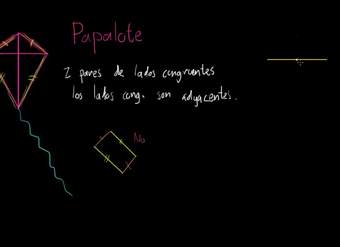 Papalote
2 pares de lados congruentes
los lados cong. son adyacentes.
No